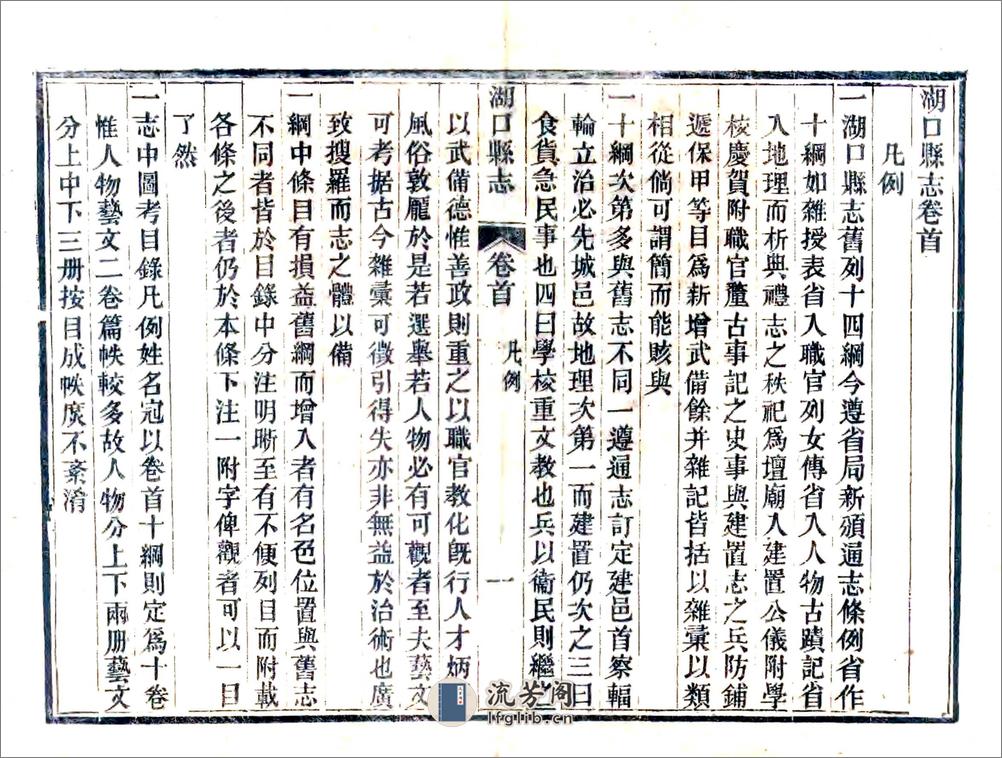 湖口縣志卷首
凡例
一湖口縣志舊列十四綱今遵省局新頒通志條例省作
十綱如雜授表省入職官列女傳省入人物古蹟記省
入地理而析典禮志之秩祀爲壇廟入建置公儀附學
校慶賀附職官釐古事記之史事與建置志之兵防鋪
遞保甲等目爲新增武備餘并雜記皆括以雜彙以類
相從倘可謂簡而能賅與
一十綱次第多與舊志不同一遵通志訂定建邑首察輻
輪立治必先城邑故地理次第一而建置仍次之三曰
食貨急民事也四曰學校重文教也兵以衞民則繼之
湖口縣志
卷首
凡例
一
以武備德惟善政則重之以職官教化旣行人才炳
風俗敦龐於是若選舉若人物必有可觀者至夫藝文
可考据古今雜彙可徵引得失亦非無益於治術也廣
致搜羅而志之體以備
一綱中條目有損益舊綱而增入者有名色位置與舊志
不同者皆於目錄中分注明晰至有不便列目而附載
各條之後者仍於本條下注一附字俾觀者可以一目
了然
一志中圖考目錄凡例姓名冠以卷首十綱則定爲十卷
惟人物藝文二卷篇帙較多故人物分上下兩册藝文
分上中下三册按目成帙庶不紊淆
流芳阁
lfglib.cn